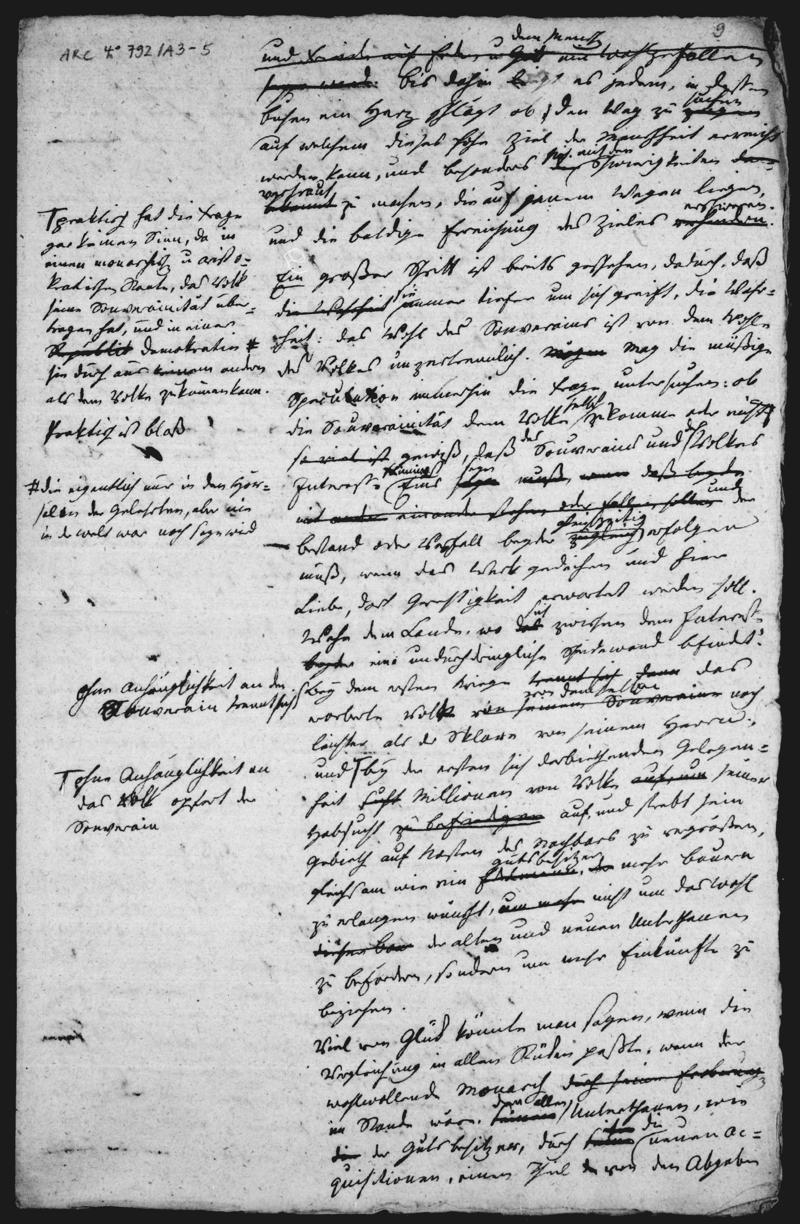 9
ARC 4° 792/A3-5
dem Mensch
und Friede auf Erden, u Gott ein Wohlgefallen
seyn werde. bis dahin liegt es jedem, in dessen
busen ein Herz schlägt ob, den Weg zu zeigen
suchen
auf welchem dieses hohe Ziel der Menschheit erreicht
werden kann, und besonders sich mit den Schwierigkeiten
vertraut
bekannt zu machen, die auf jenem Wegen liegen,
und die baldige Erreichung des Zieles erschweren.
verhindern.
Ein großer Schritt ist bereits geschehen, dadurch, daß
die Wahrheit immer tiefer um sich greift, die Wahr-
heit: das Wohl des Souverains ist von dem Wohle
des Volkes unzertrennlich. mag die müßige
Speculation immerhin die Frage untersuchen: ob
die Souverainität dem Volke selbst zukomme oder nicht
so viel ist gewiß, daß des Souverains und des Volkes
Interesse Eins seyn muß, daß beyde
mit einander stehen oder fallen sollen und der
bestand oder Verfall beyder gleichzeitig erfolgen
zugleich
muß, wenn das Werk gedeihen und hier
Liebe, dort Gerechtigkeit erwartet werden soll.
Wehe dem Lande, wo sich zwischen dem Interesse
beyder eine undurchdringliche Scheidewand befindet!
bey dem ersten Kriege trennt sich das
eroberte Volk von demselben noch
von seinem Souveraine
leichter als der Sklave von seinem Herrn,
und bey der ersten sich darbiethenden Gelegen-
heit Millionen von Volke seiner
Habsucht zu befriedigen auf, und strebt sein
Gebieth auf Kosten des Nachbars zu vergrößern,
gleichsam wie ein Gutsbesitzer mehr bauern
zu erlangen wünscht, nicht um das Wohl
der alten und neuen Unterthanen
zu befördern, sondern um mehr Einkünfte zu
beziehen.
Viel von Glück könnte man sagen, wenn die
Vergleichung in allen Stücken paßte, wenn der
wohlwollende Monarch durch seine Eroberung
im Stande wäre, den alten Unterthanen, wie
der Gutsbesitzer, durch die neuen Ac-
quisitionen, einen Theil von den Abgaben
praktisch hat die Frage
gar keinen Sinn, da in
einem monarchisch u aristo-
kratischen Staate, das Volk
seine Souverainität über-
tragen hat, und in einer
Republik demokratie #
sie durchaus keinem andern
als dem Volke zukommen kann.
Praktisch ist bloß
# die eigentlich nur in den Hör-
sälen der Gelehrten, aber nie
in der welt war noch seyn wird
ohne Anhänglichkeit an den
Souverain trennt sich
ohne Anhänglichkeit an
das Volk opfert der
Souverain